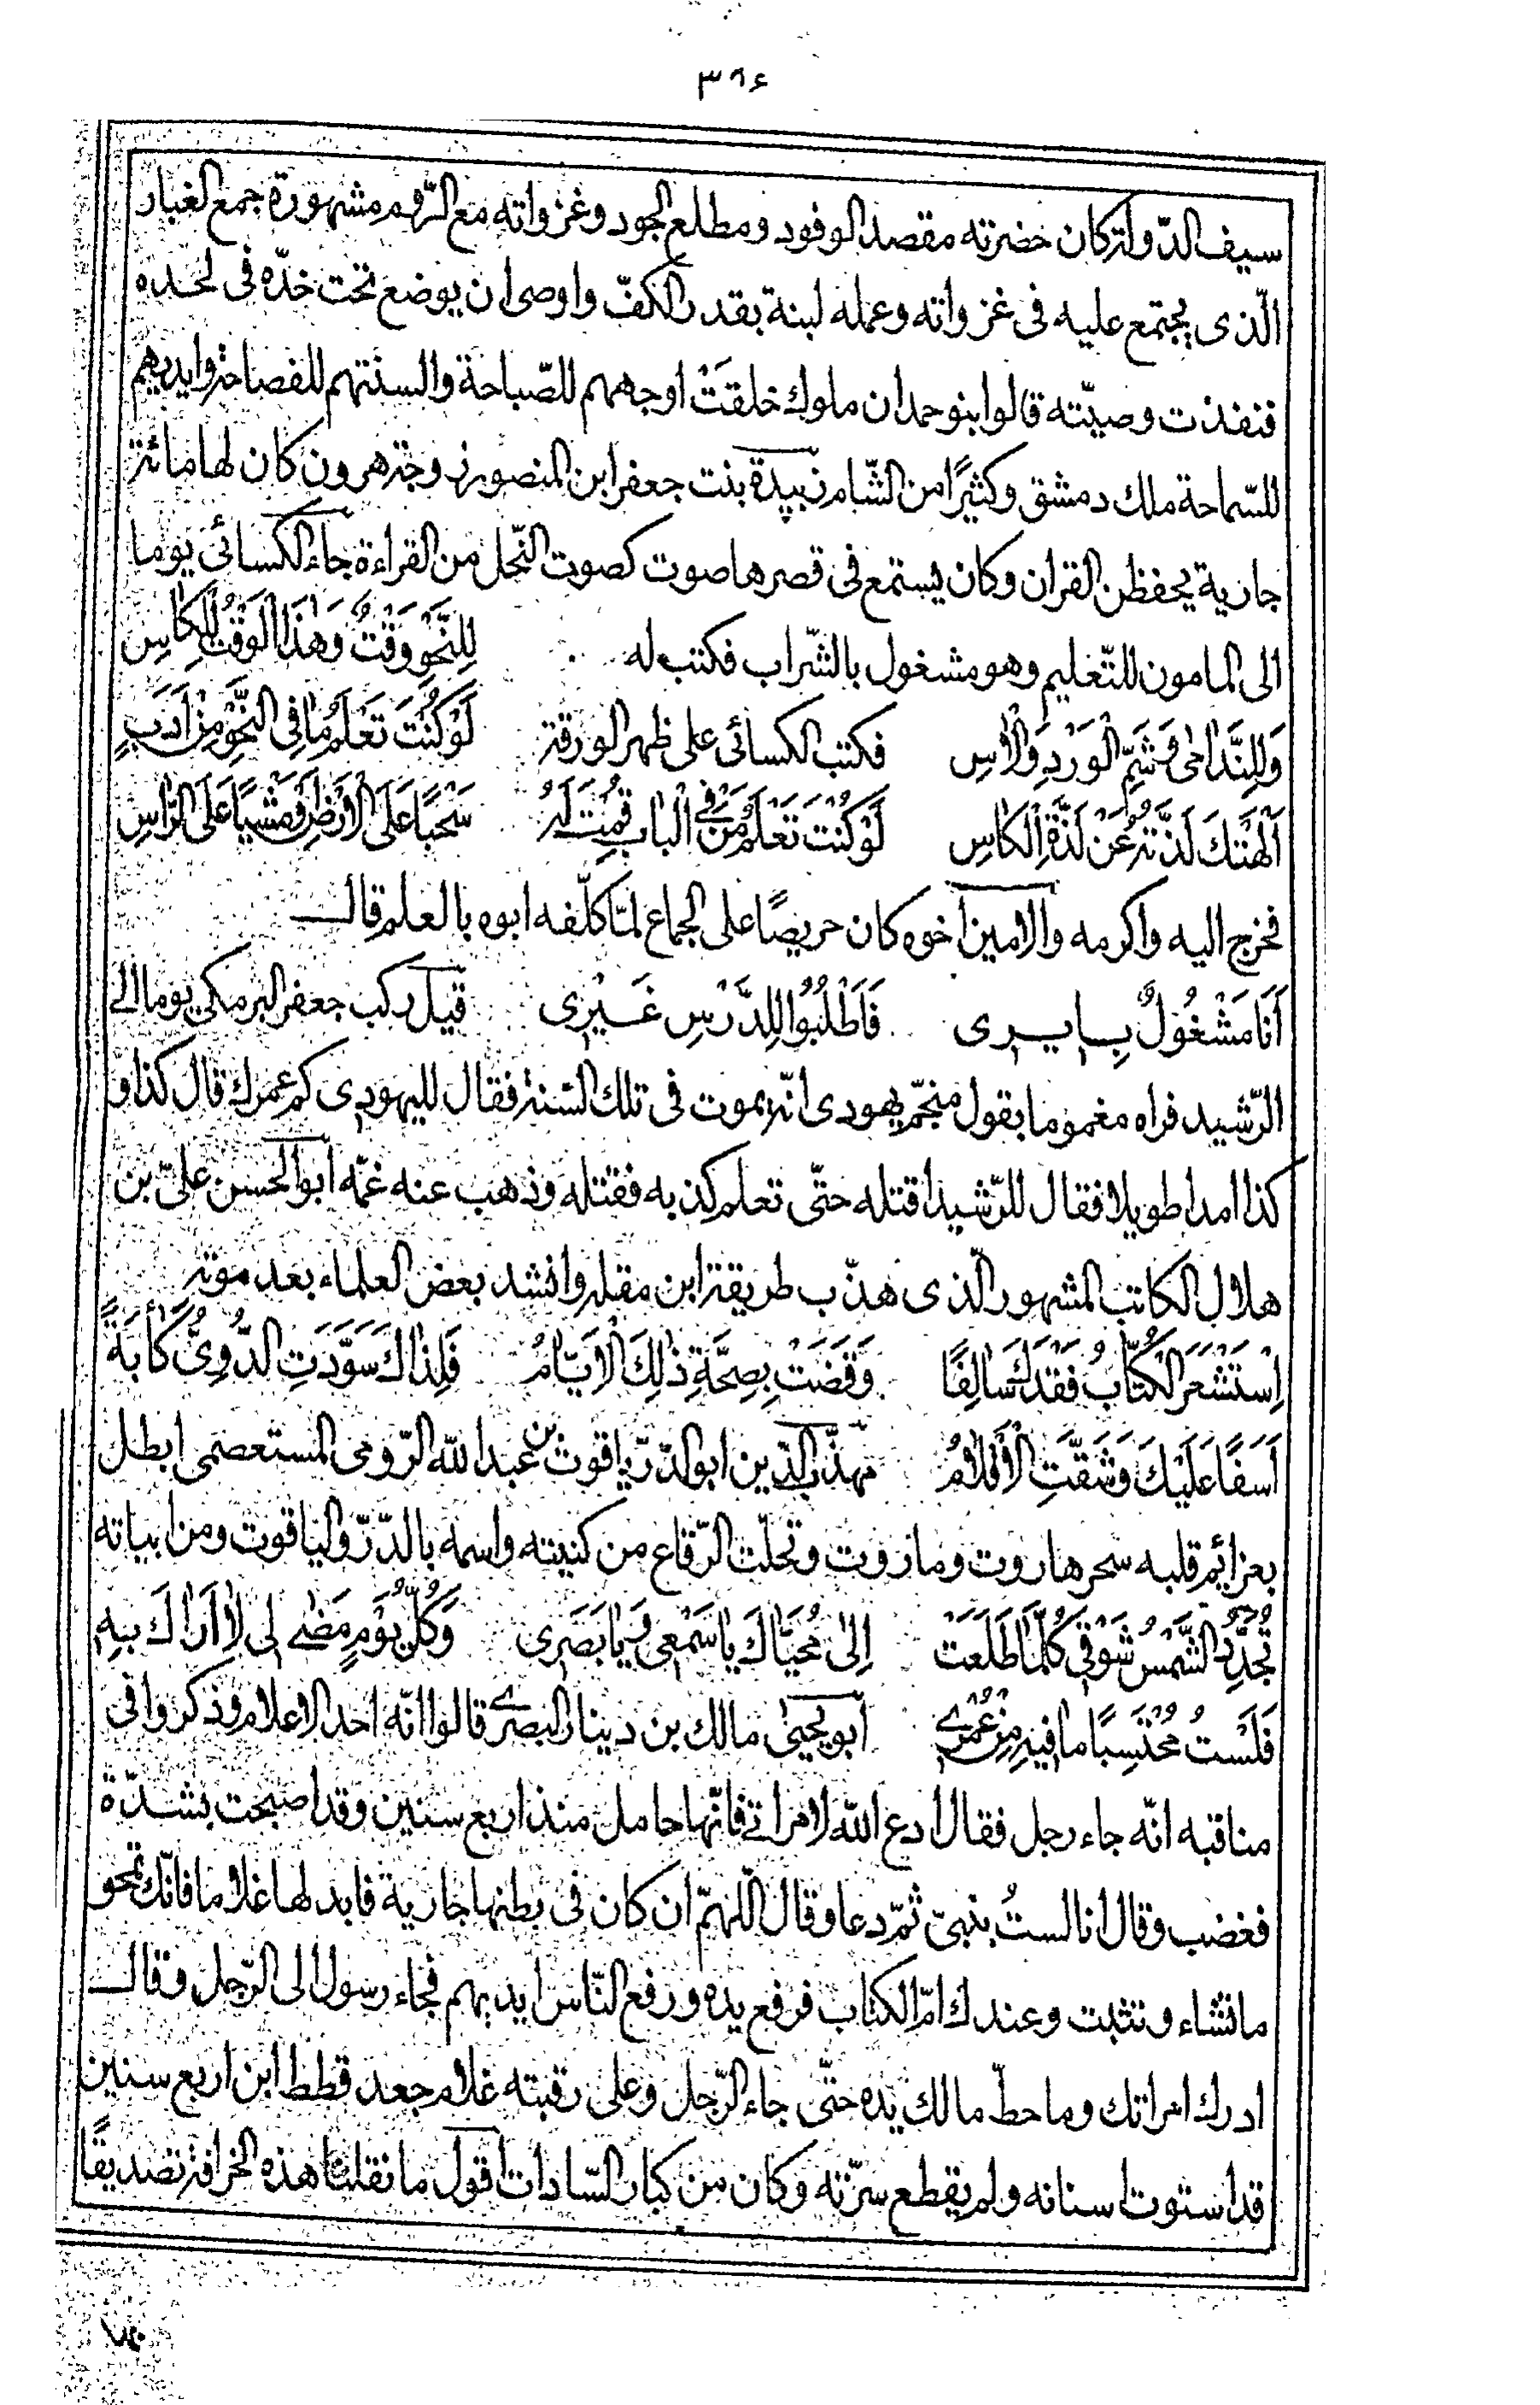 ٣٩٤
سيف الدّولة كان حضرته مقصد الوفود ومطلع الجود وغزواته مع الرّوم مشهورة جمع الغبار
الّذى يجتمع عليه فى غزواته وعمله لبنة بقدر الكفّ واوصى ان يوضع تحت خدّه فى لحده
فنفذت وصيّته قالوا بنو حمدان ملوك خلقَتْ اوجههم للصّباحة والسنتهم للفصاحة وايديهم
للسّماحة ملك دمشق وكثيرًا من الشّام زبيدة بنت جعفر ابن المنصور زوجة هرون كان لها مائة
جارية يحفظن القران وكان يستمع فى قصرها صوت كصوت النّحل من القراءة جاء الكسائى يوما
الى المامون للتّعليم وهو مشغول بالشّراب فكتب له لِلنَّحْوِ وَقْتٌ وَهٰذَا الْوَقْتُ لِلْكَاسِ
وَلِلنَّدَامٰى وَشَمِّ الْوَرْدِ وَالْاٰسِ فكتب الكسائى على ظهر الورقة لَوْ كُنْتَ تَعْلَمُ مَا فِى النَّحْوِ مِنْ اَدَبٍ
اَلْهَتْكَ لَذَّتُهُ عَنْ لَذَّةِ الْكَاسِ لَوْ كُنْتَ تَعْلَمُ مَنْ فِى الْبَابِ قُمْتَ لَهُ سَحْبًا عَلَى الْاَرْضِ وَمَشْيًا عَلَى الرَّاسِ
فخرج اليه واكرمه والامين اخوه كان حريصًا على الجماع لمّا كلّفه ابوه بالعلم قال
اَنَا مَشْغُولٌ بِايرى فَاَطْلُبُوا لِلدَّرْسِ غَيْرِى قيل ركب جعفر البرمكى يوما الى
الرّشيد فراه مغموما بقول منجّم يهودى انّه يموت فى تلك السّنة فقال لليهودى كم عمرك قال كذا و
كذا امدا طويلا فقال للرّشيد اقتله حتّى تعلم كذبه فقتله وذهب عنه غمّه ابو الحسن علىّ بن
هلال الكاتب المشهور الّذى هذّب طريقة ابن مقلة وانشد بعض العلماء بعد موته
اِسْتَشْعَرَ الْكُتَّابُ فَقْدَكَ سَالِفًا وَقَضَتْ بِصِحَّةِ ذٰلِكَ الْاَيَّامُ فَلِذَاكَ سَوَّدَتِ الدُّوِىُّ كَاٰبَةً
اَسَفًا عَلَيْكَ وَشَقَّتِ الْاَقْلَامُ مهذّب الدّين ابو الدّرّ ياقوت بن عبد اللّه الرّومى المستعصمى ابطل
بعزائم قلبه سحر هاروت وماروت وتحلّت الرّقاع من كنيته واسمه بالدّرّ والياقوت ومن ابياته
تُجَدِّدُ الشَّمْسُ شَوْقِى كُلَّمَا طَلَعَتْ اِلٰى مُحَيَّاكَ يَا سَمْعِى وَيَا بَصَرِى وَكُلُّ يَوْمٍ مَضٰى لِى لَا اَرَاكَ بِهِ
فَلَسْتُ مُحْتَسِبًا مَا فِيهِ مِنْ عُمْرِى ابو يحيى مالك بن دينار البصرى قالوا انّه احد الاعلام وذكروا فى
مناقبه انّه جاء رجل فقال ادع اللّه لامراتى فانّها حامل منذ اربع سنين وقد اصبحت بشدّة
فغضب وقال انا لستُ بنبىّ ثمّ دعا وقال اللّهمّ ان كان فى بطنها جارية فابد لها غلاما فانّك تمحو
ما تشاء وتثبت وعندك امّ الكتاب فرفع يده ورفع النّاس ايديهم فجاء رسول الى الرّجل وقال
ادرك امراتك وما حطّ مالك يده حتّى جاء الرّجل وعلى رقبته غلام جعد قطط ابن اربع سنين
قد استوت اسنانه ولم يقطع سرّته وكان من كبار السّادات اقول ما نقلنا هذه الخرافة تصديقًا